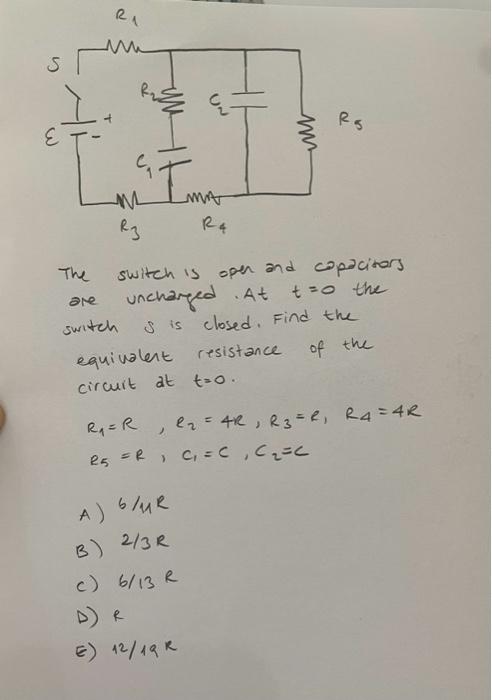 R1
S
R2
C2
R5
+
ε
-
C1
R3
R4
The switch is open and capacitors
are uncharged. At t=0 the
switch S is closed. Find the
equivalent resistance of the
circuit at t=0.
R1=R , R2 = 4R, R3=R, R4=4R
R5 =R , C1=C , C2=C
A) 6/11R
B) 2/3R
C) 6/13 R
D) R
E) 12/19R